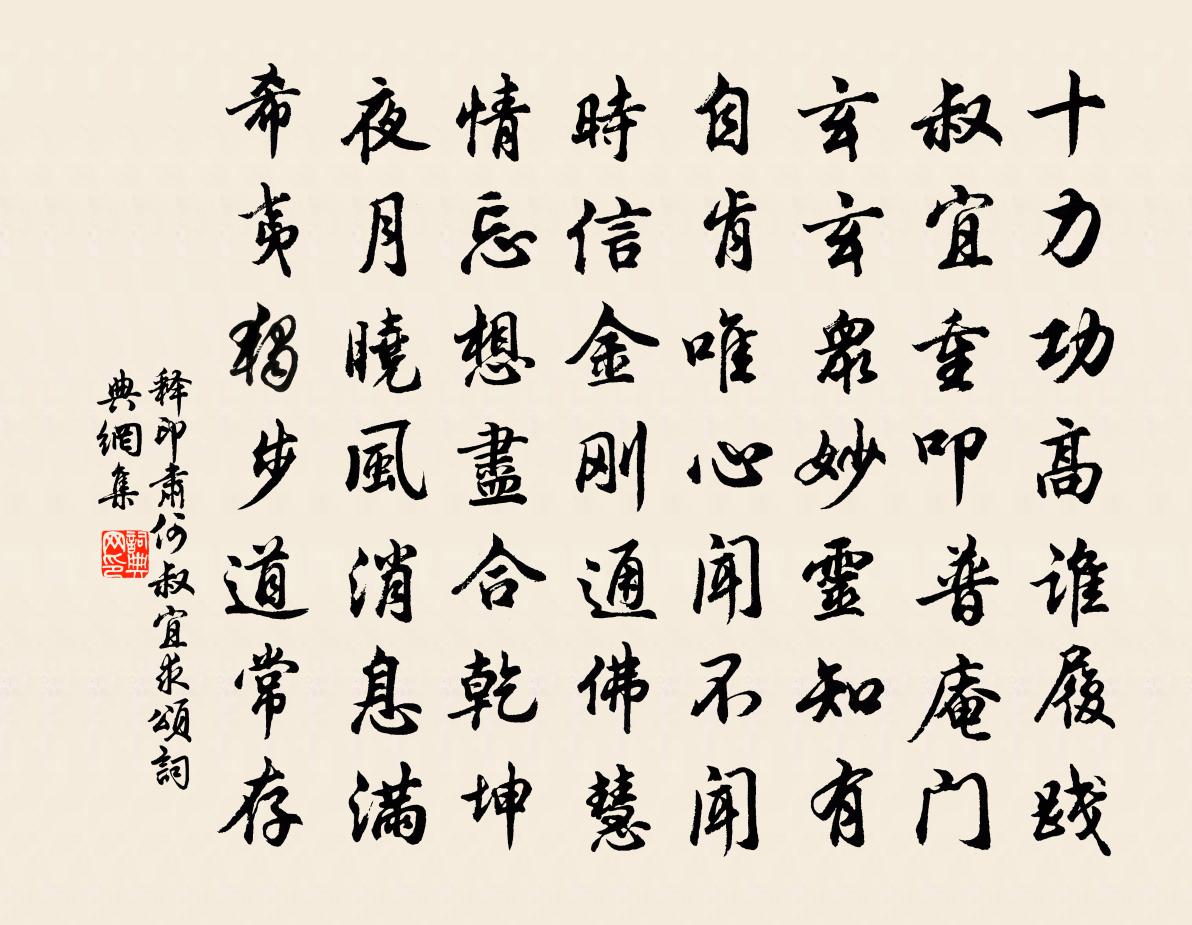 十力功高谁履践
叔宜重叩普庵门
玄玄眾妙靈知有
自肯唯心闻不闻
時信金刚通佛慧
情忘想盡合乾坤
夜月曉風消息满
希夷獨步道常存
释印肃何叔宜求頌詞
典網集
詞典
网印